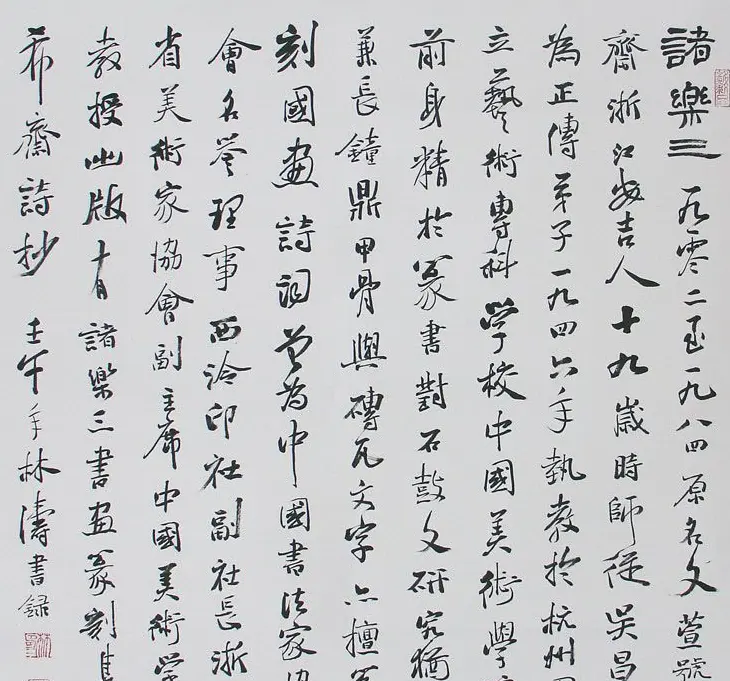 諸樂三 一九零二至一九八四原名文萱號
齋浙江安吉人十九歲時師從吳昌
為正傳弟子一九四六年執教於杭州
立藝術專科学校中國美術學
前身精於篆書對石鼓文研究猶
兼長鐘鼎甲骨與磚瓦文字亦擅
刻國畫詩詞曾為中國書法家
會名誉理事西泠印社副社長浙
省美術家協會副主席中國美術学
教授出版有諸樂三書畫篆刻
希齋詩抄 壬午年林濤書録